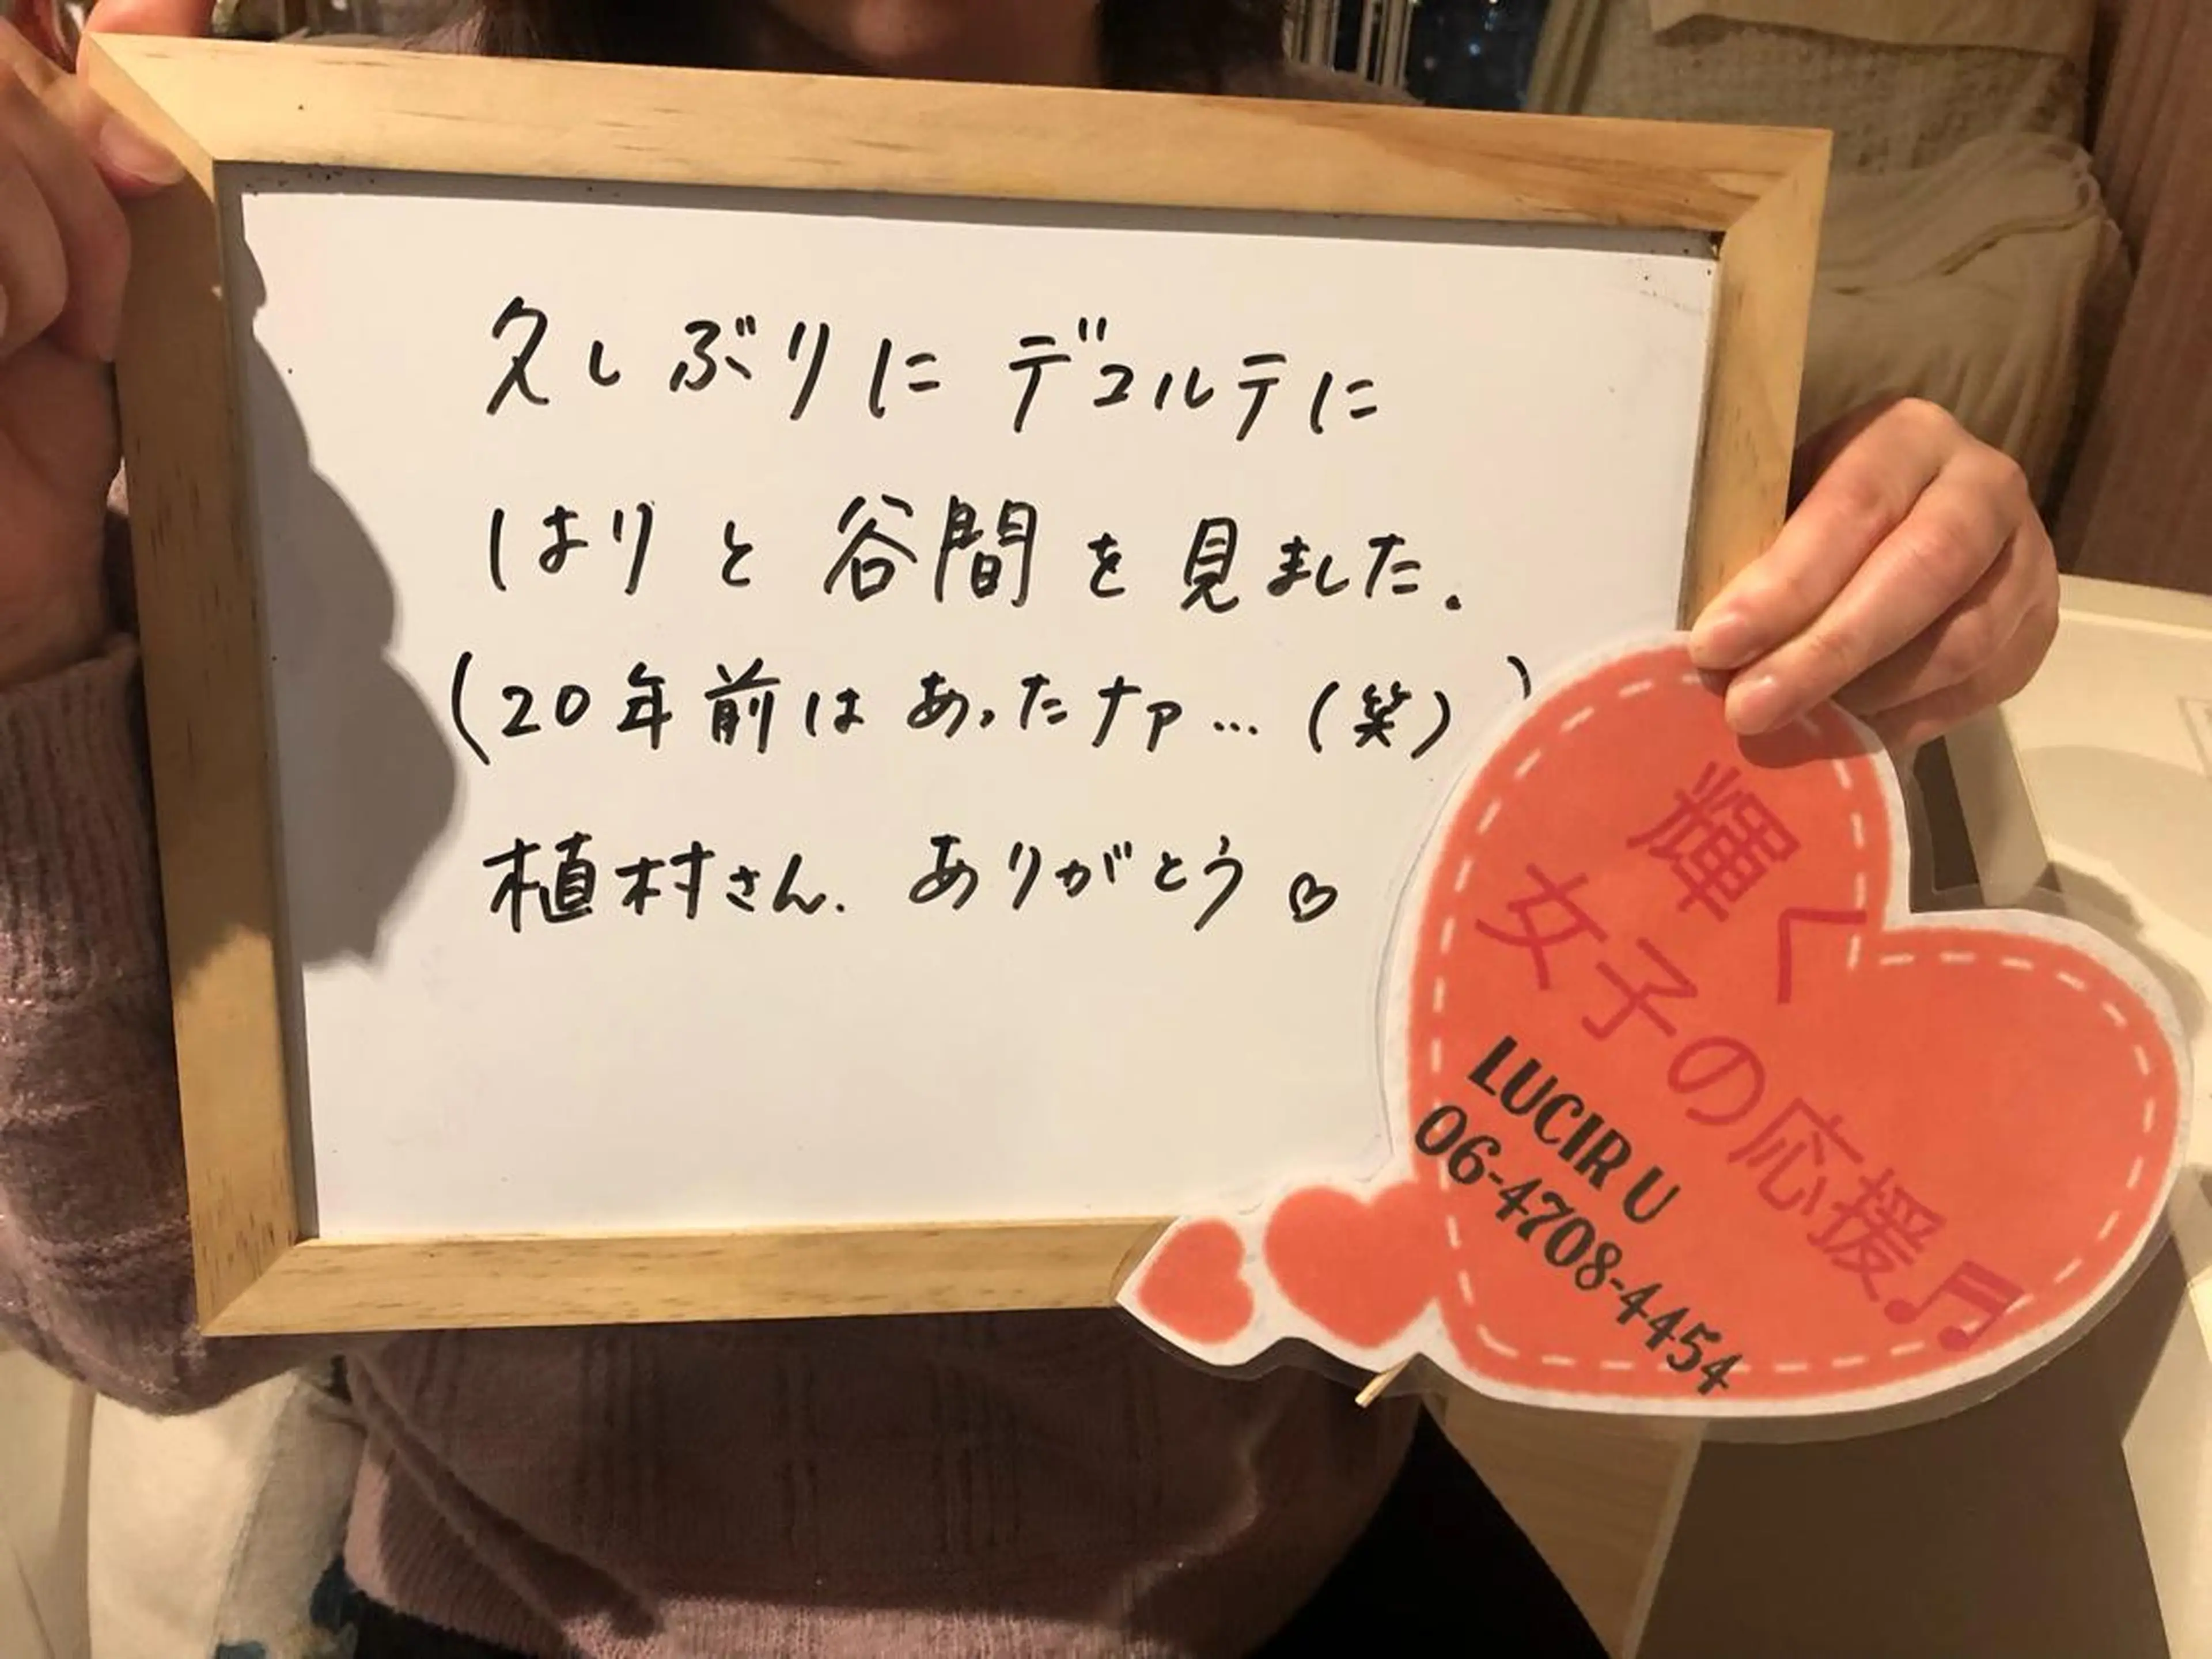 久しぶりにデコルテに
はりと谷間を見ました.
(20年前はあったナァ…(笑))
植村さん. ありがとう♡
輝く
女子の応援♬
LUCIR U
06-4708-4454